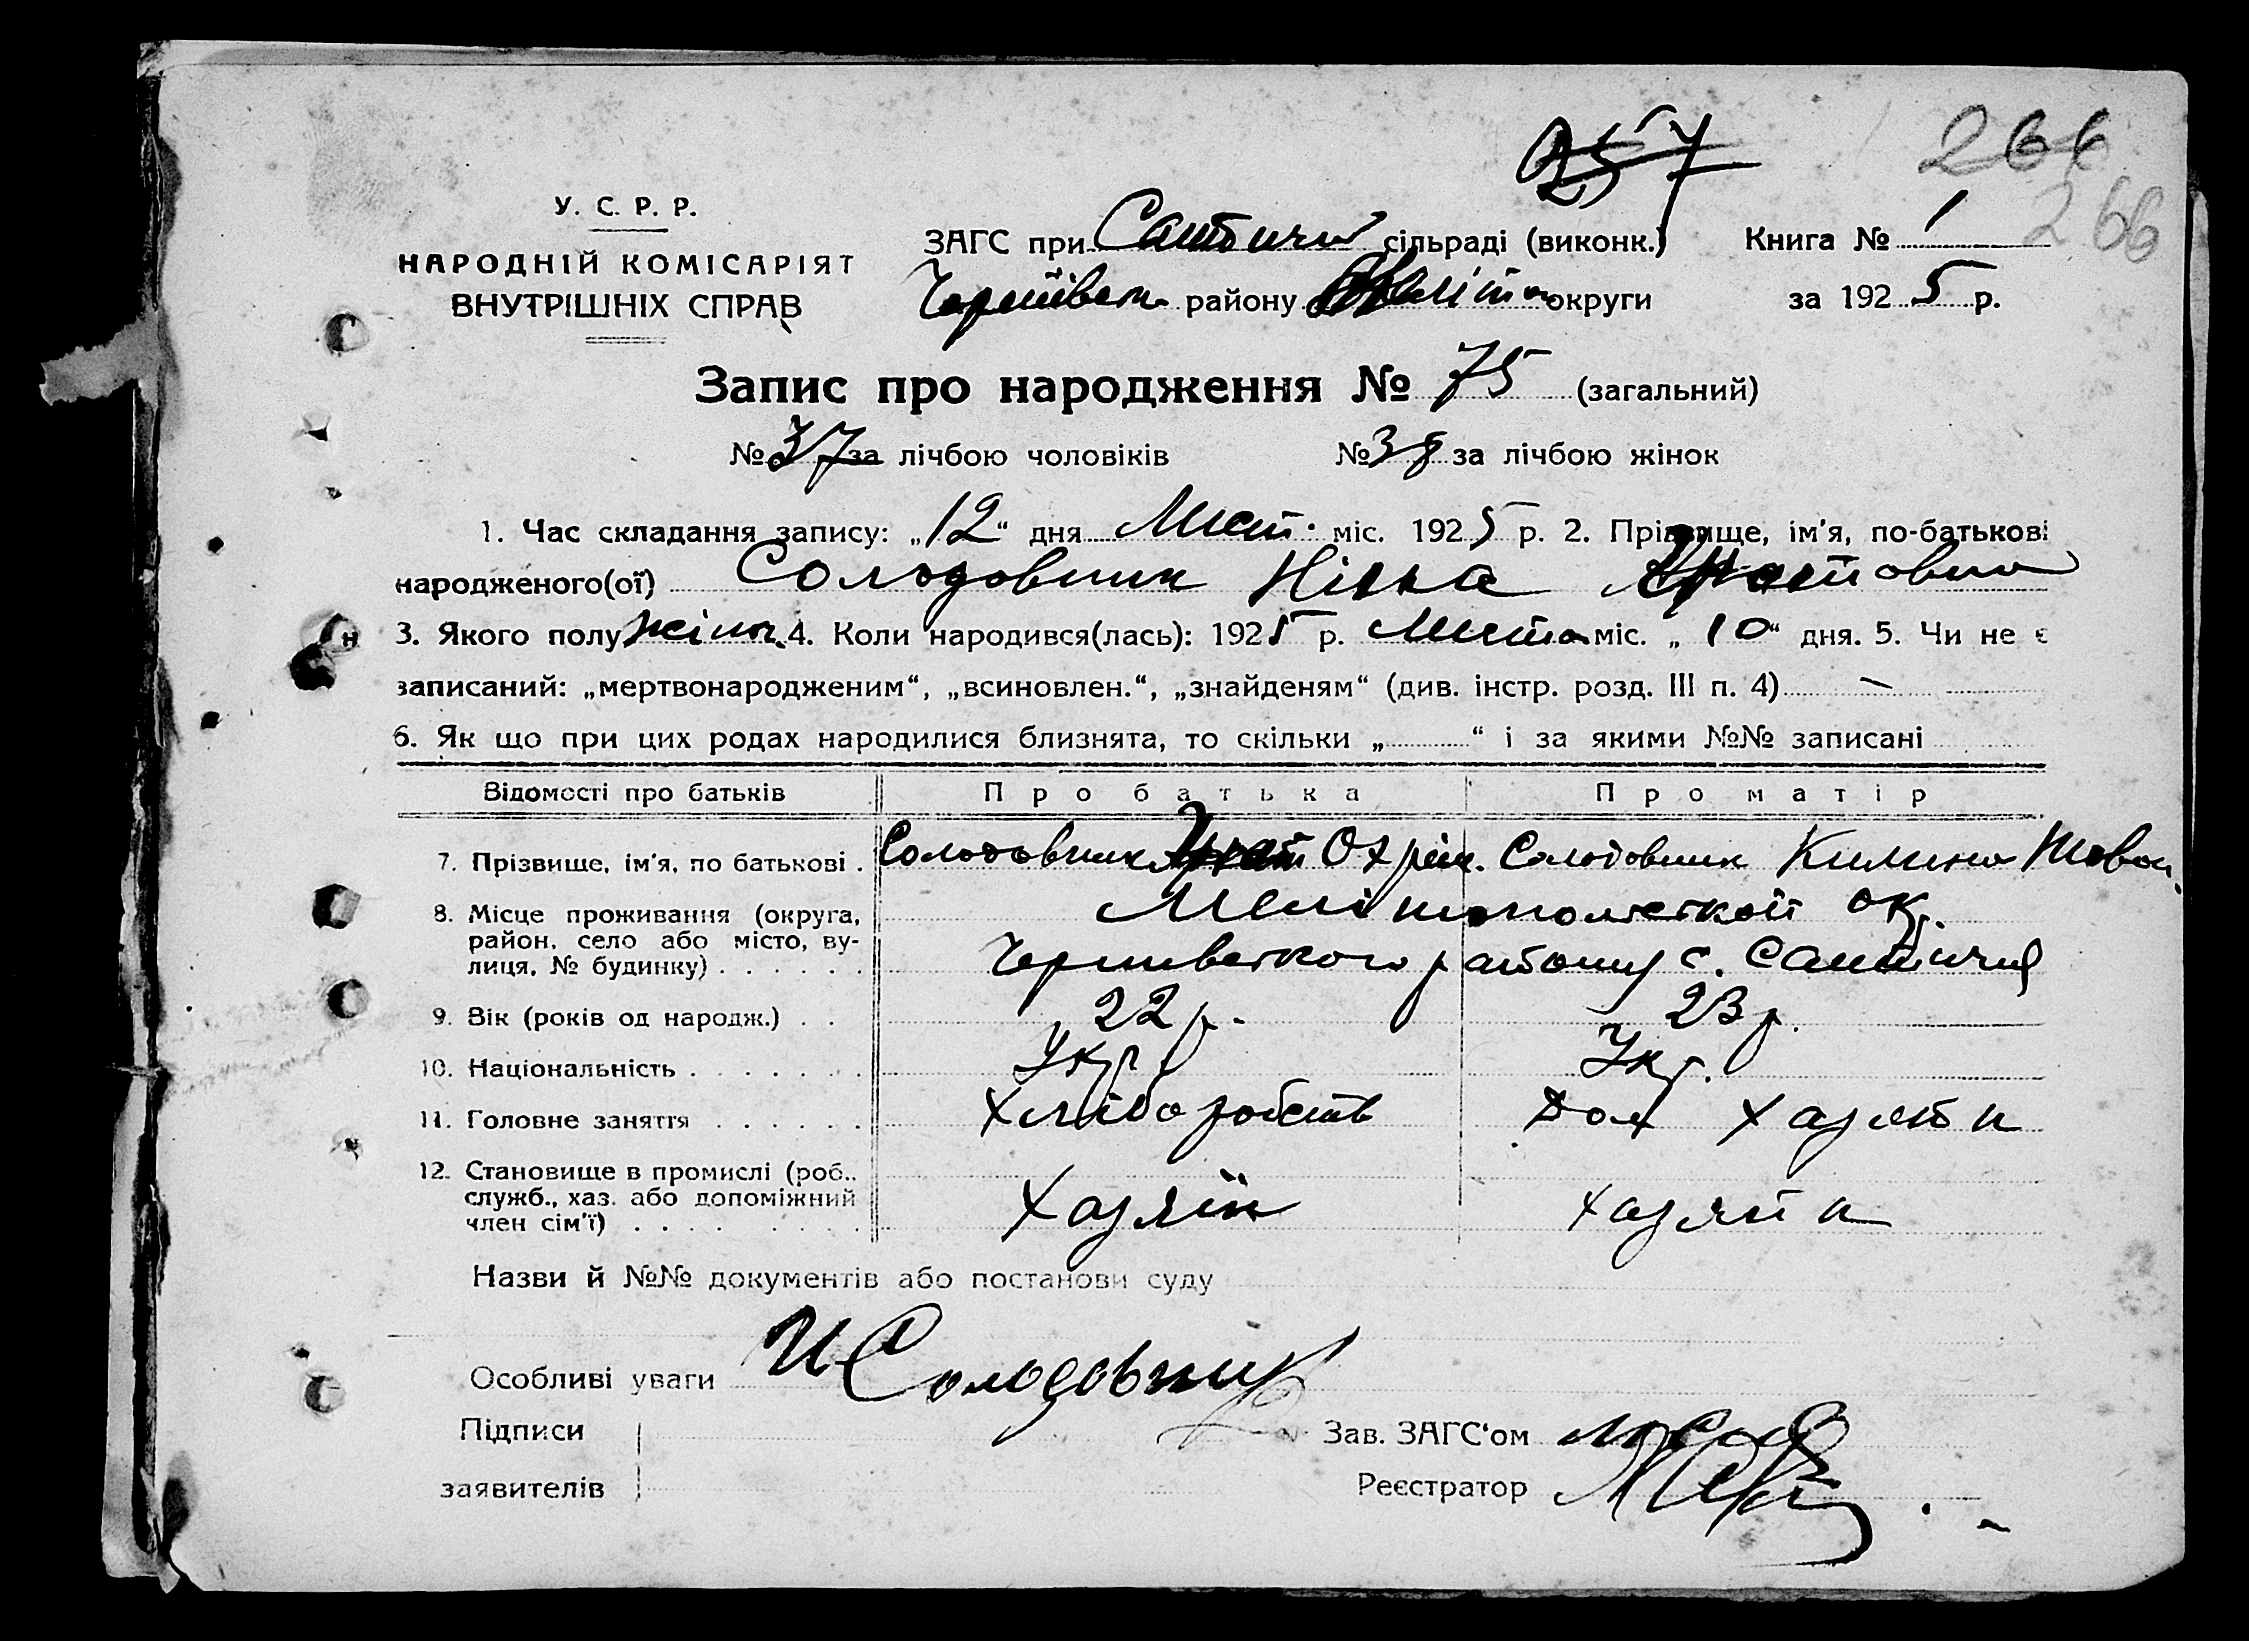 257
266
266
У. С. Р. Р.
НАРОДНІЙ КОМІСАРІЯТ
ВНУТРІШНІХ СПРАВ
ЗАГС при сільраді (виконк.) Книга № 1
району округи за 1925 р.
Запис про народження № 75 (загальний)
№ 37 за лічбою чоловіків № 38 за лічбою жінок
1. Час складання запису: „12“ дня міс. 1925 р. 2. Прізвище, ім'я, по-батькові
народженого(ої) Солодовник Нінна
3. Якого полу жіноч. 4. Коли народився(лась): 1925 р. міс. „10“ дня. 5. Чи не є
записаний: „мертвонародженим“, „всиновлен.“, „знайденям“ (див. інстр. розд. III п. 4) —
6. Як що при цих родах народилися близнята, то скільки „ “ і за якими №№ записані
Відомості про батьків Про батька Про матір
7. Прізвище, ім'я, по батькові . Солодовник Охрім. Солодовник Килина
8. Місце проживання (округа, Мелітопольской окр.
район, село або місто, ву-
лиця, № будинку) . . . . . . району с.
9. Вік (років од народж.) . . 22 р. 23 р.
10. Національність . . . . . . . Укр. Укр.
11. Головне заняття . . . . . . Хлібороб Дом Хазяйк
12. Становище в промислі (роб.,
служб., хаз. або допоміжний
член сім'ї) . . . . . . . . Хазяїн хазяйк
Назви й №№ документів або постанови суду
Особливі уваги И Солодовник
Підписи Зав. ЗАГС'ом
заявителів Реєстратор